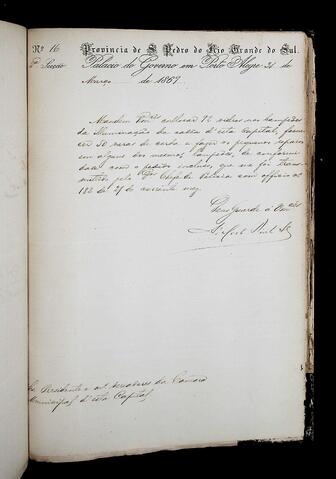 Nº 16 Provincia de S. Pedro do Rio Grande do Sul.
Secção Palacio do Governo em Porto Alegre 21 de
Março de 1857
Mandem Vmces collocar 12 vidros nos lampeões
da illuminação da cadêa d'esta Capital, fornecer
50 varas de corda e fazer os pequenos reparos
em alguns dos mesmos lampeões, de conformi-
dade com o pedido incluso, que me foi trans-
mittido pelo Dr. Chefe de Policia com officio nº
182 de 21 do corrente mez.
Deos guarde a Vmces
Presidente e Vereadores da Camara
Municipal d'esta Capital